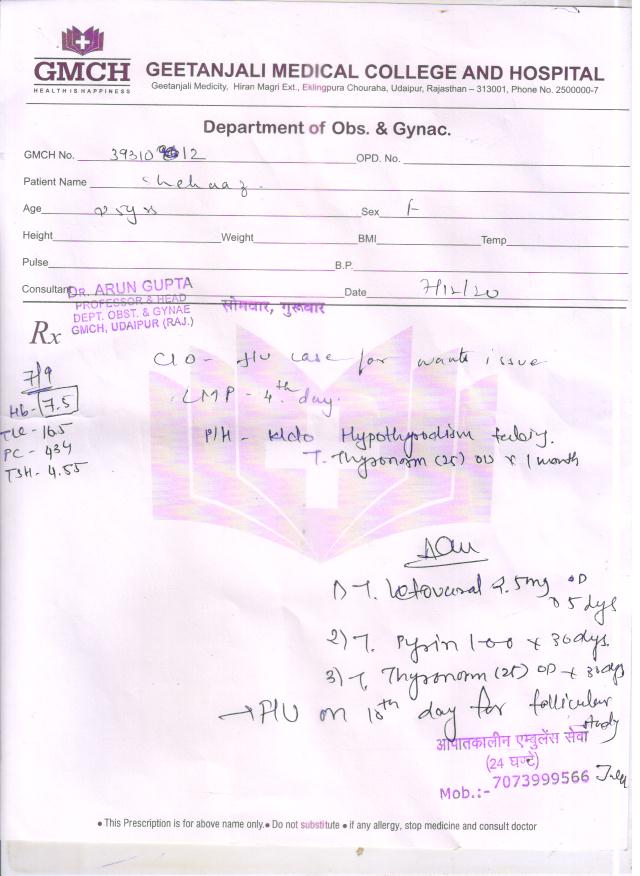 GMCH
HEALTH IS HAPPINESS
GEETANJALI MEDICAL COLLEGE AND HOSPITAL
Geetanjali Medicity, Hiran Magri Ext., Eklingpura Chouraha, Udaipur, Rajasthan – 313001, Phone No. 2500000-7
Department of Obs. & Gynac.
GMCH No. 39310 12 OPD. No.
Patient Name Shehnaz
Age yrs Sex F
Height Weight BMI Temp
Pulse B.P.
Consultant DR. ARUN GUPTA Date 7/12/20
PROFESSOR & HEAD
DEPT. OBST. & GYNAE
GMCH, UDAIPUR (RAJ.)
सोमवार, गुरूवार
Rx
C/O - f/u case for wants issue
LMP - 4th day.
P/H - k/c/o Hypothyrodism
T. Thyronorm (25) OD x 1 month
7/9
Hb - 7.5
TLC - 165
PC - 434
TSH - 4.55
Adv
1) T. 2.5mg OD x 5 dys
2) T. 100 x 30 dys.
3) T. Thyronorm (25) OD x 30 dys
→ F/U on 10th day for follicular study
आपातकालीन एम्बुलेंस सेवा
(24 घण्टे)
Mob.:- 7073999566
• This Prescription is for above name only. • Do not substitute • if any allergy, stop medicine and consult doctor